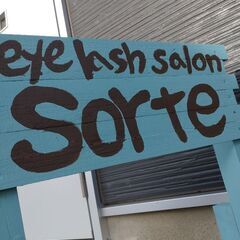 eye lash salon
Sorte